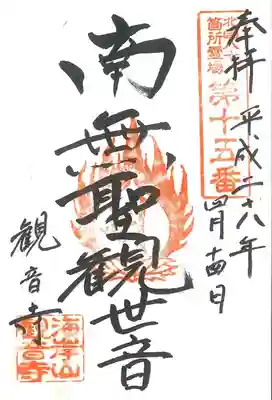 奉拝
平成二十八年
四月十四日
第十五番
箇所霊場
南無聖観世音
観音寺
海岸山
観音寺